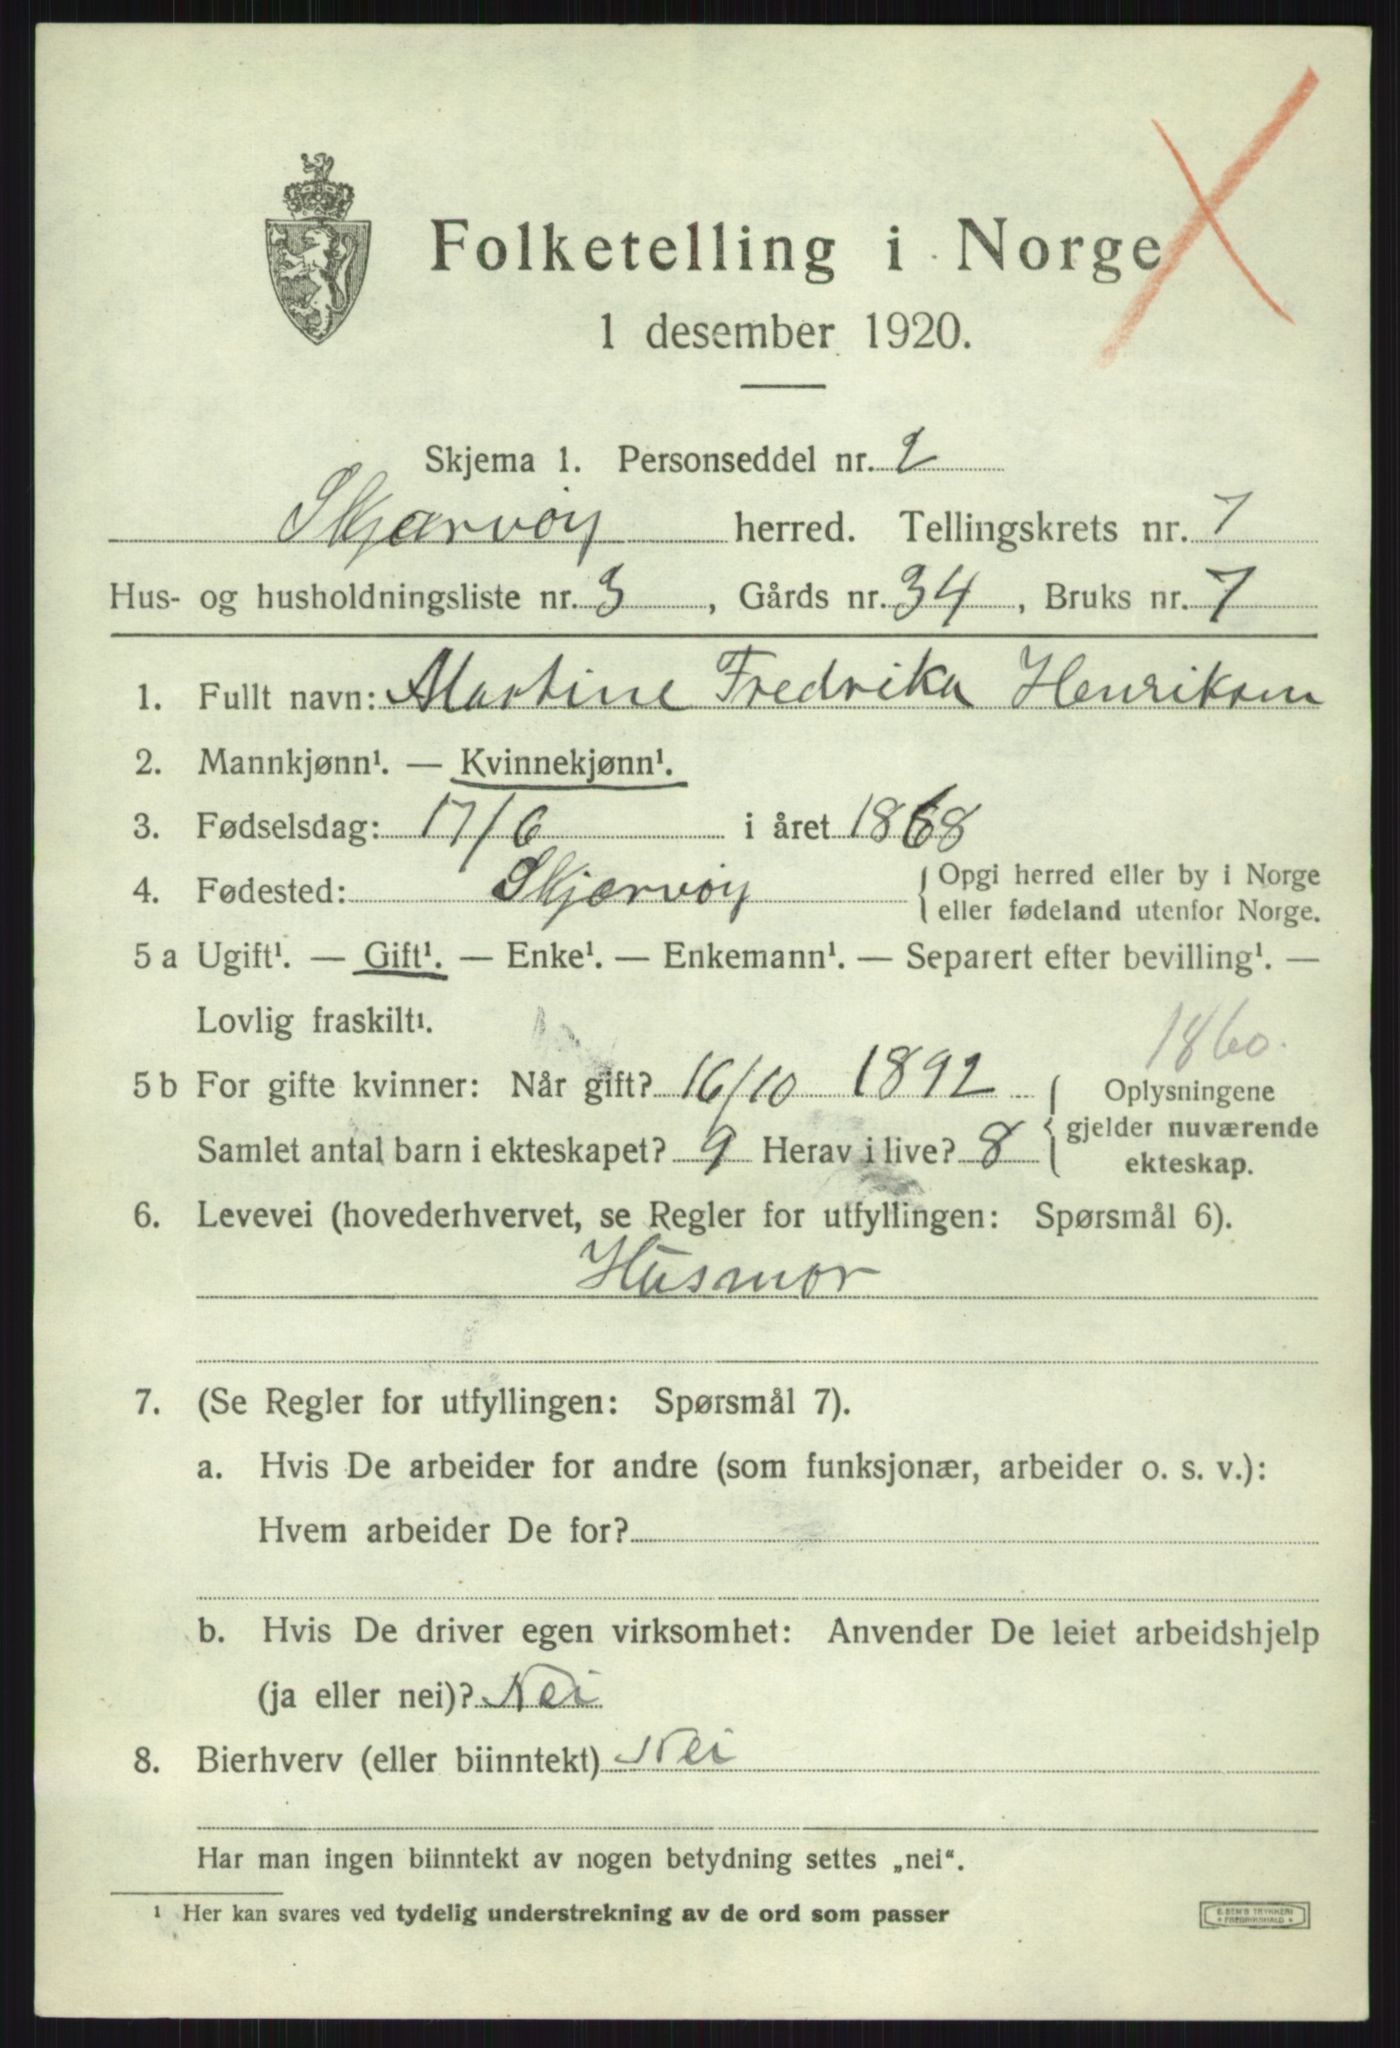 Folketelling i Norge
1 desember 1920.
Skjema 1. Personseddel nr. 2
Skjærvöy herred. Tellingskrets nr. 7
Hus- og husholdningsliste nr. 3, Gårds nr. 34, Bruks nr. 7
1. Fullt navn: Martine Fredrika Henriksen
2. Mannkjønn¹. — Kvinnekjønn¹.
3. Fødselsdag: 17/6 i året 1868
4. Fødested: Skjærvöy { Opgi herred eller by i Norge
eller fødeland utenfor Norge.
5 a Ugift¹. — Gift¹. — Enke¹. — Enkemann¹. — Separert efter bevilling¹. —
Lovlig fraskilt¹.
1860.
5 b For gifte kvinner: Når gift? 16/10 1892 { Oplysningene
gjelder nuværende
Samlet antal barn i ekteskapet? 9 Herav i live? 8
ekteskap.
6. Levevei (hovederhvervet, se Regler for utfyllingen: Spørsmål 6).
Husmor
7. (Se Regler for utfyllingen: Spørsmål 7).
a. Hvis De arbeider for andre (som funksjonær, arbeider o. s. v.):
Hvem arbeider De for?
b. Hvis De driver egen virksomhet: Anvender De leiet arbeidshjelp
(ja eller nei)? Nei
8. Bierhverv (eller biinntekt) Nei
Har man ingen biinntekt av nogen betydning settes „nei“.
¹ Her kan svares ved tydelig understrekning av de ord som passer
E. SEM'S TRYKKERI
FREDRIKSHALD